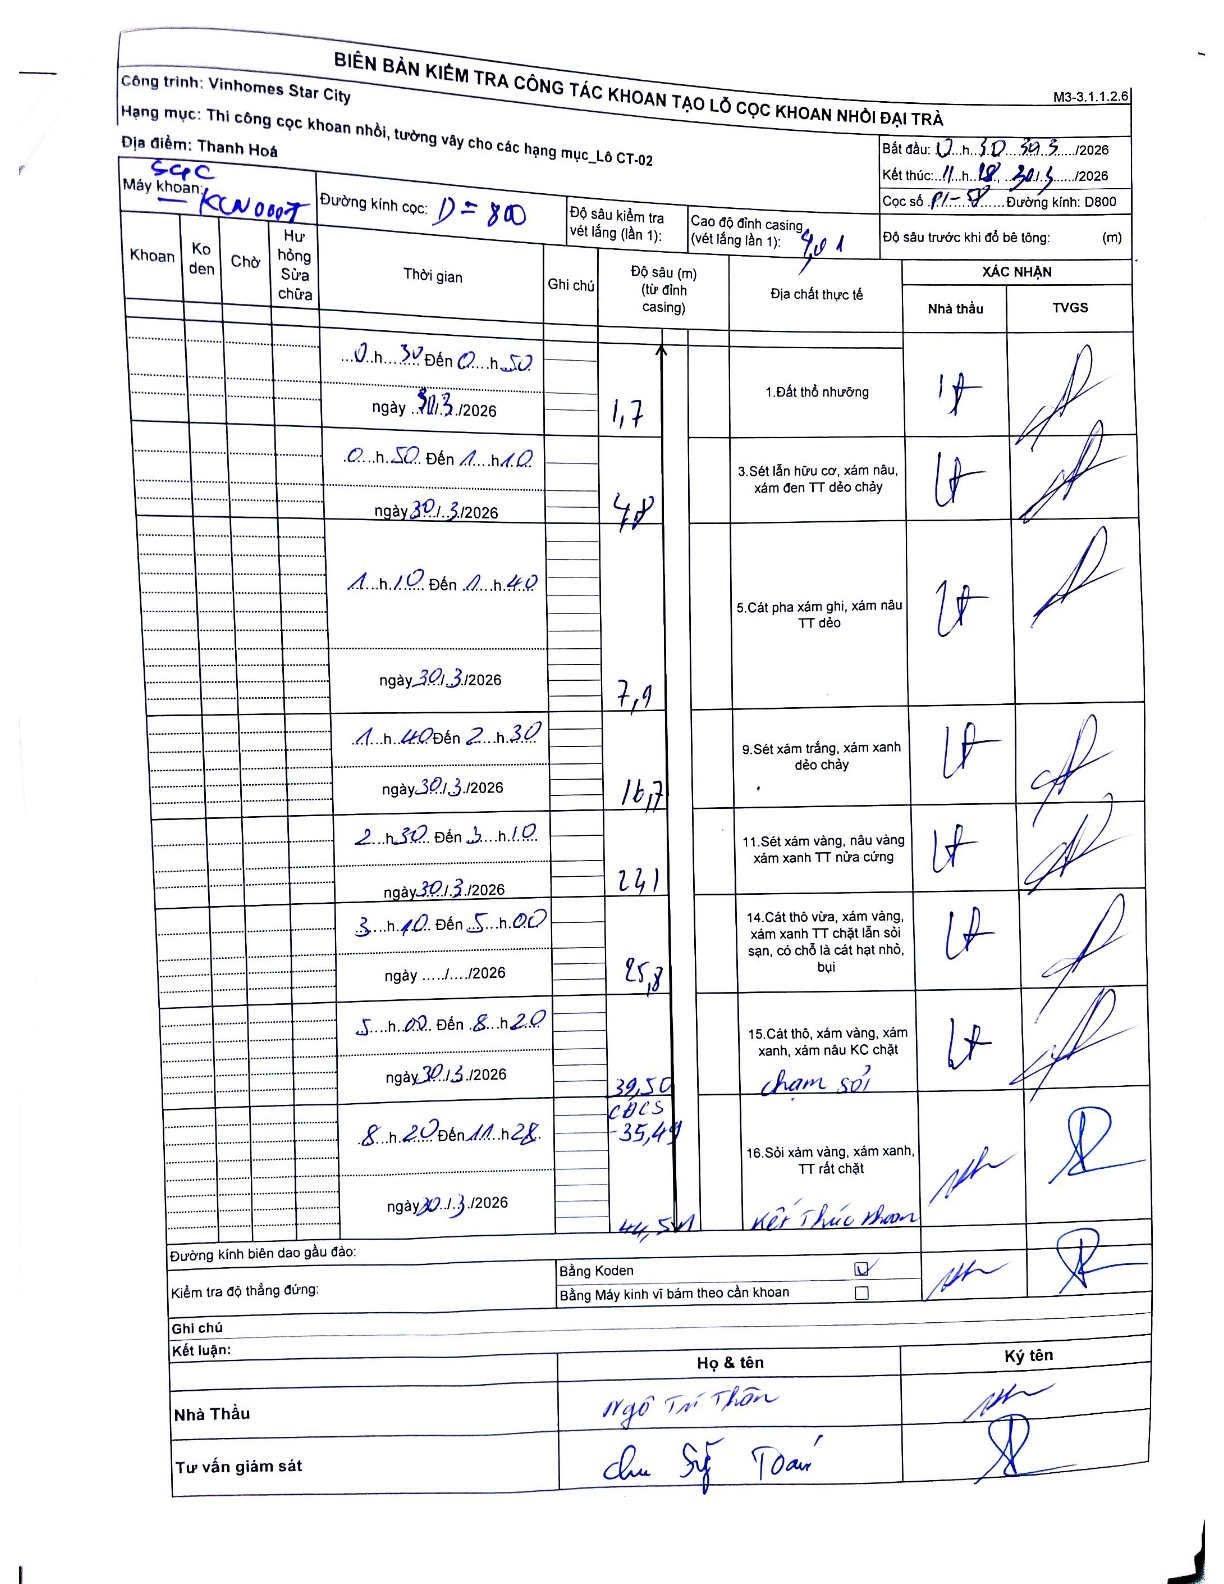 BIÊN BẢN KIỂM TRA CÔNG TÁC KHOAN TẠO LỖ CỌC KHOAN NHỒI ĐẠI TRÀ
M3-3.1.1.2.6
Công trình: Vinhomes Star City
Hạng mục: Thi công cọc khoan nhồi, tường vây cho các hạng mục_Lô CT-02
Địa điểm: Thanh Hoá
Bắt đầu: 0...h 30 30.3 /2026
Kết thúc: 11...h 28, 30/3 /2026
Cọc số P1-58 Đường kính: D800
Máy khoan:
Đường kính cọc: D = 800
Độ sâu kiểm tra vét lắng (lần 1):
Cao độ đỉnh casing (vét lắng lần 1): 4,01
Độ sâu trước khi đổ bê tông: (m)
Khoan
Ko den
Chờ
Hư hỏng Sửa chữa
Thời gian
Ghi chú
Độ sâu (m) (từ đỉnh casing)
Địa chất thực tế
XÁC NHẬN
Nhà thầu
TVGS
0..h 30 Đến 0...h 50
ngày 30/3/2026
1,7
1.Đất thổ nhưỡng
0...h.50. Đến 1...h10
ngày 30/3/2026
4,8
3.Sét lẫn hữu cơ, xám nâu,
xám đen TT dẻo chảy
1...h.10. Đến 1...h.40
ngày 30/3/2026
7,9
5.Cát pha xám ghi, xám nâu
TT dẻo
1...h 40 Đến 2...h 30
ngày 30/3/2026
16,7
9.Sét xám trắng, xám xanh
dẻo chảy
2...h 30. Đến 3...h 10
ngày 30/3/2026
24,1
11.Sét xám vàng, nâu vàng
xám xanh TT nửa cứng
3...h.10. Đến 5...h.00
ngày ...../..../2026
25,8
14.Cát thô vừa, xám vàng,
xám xanh TT chặt lẫn sỏi
sạn, có chỗ là cát hạt nhỏ,
bụi
5....h.00. Đến 8...h 20
ngày 30/3/2026
39,50
15.Cát thô, xám vàng, xám
xanh, xám nâu KC chặt
chạm sỏi
8...h 20 Đến 11...h 28
ngày 30/3/2026
CĐCS
-35,49
44,51
16.Sỏi xám vàng, xám xanh,
TT rất chặt
Kết thúc khoan
Đường kính biên dao gầu đào:
Kiểm tra độ thẳng đứng:
Bằng Koden
Bằng Máy kinh vĩ bám theo cần khoan
Ghi chú
Kết luận:
Họ & tên
Ký tên
Nhà Thầu
Ngô Trí Thân
Tư vấn giám sát
Chu Sỹ Toán